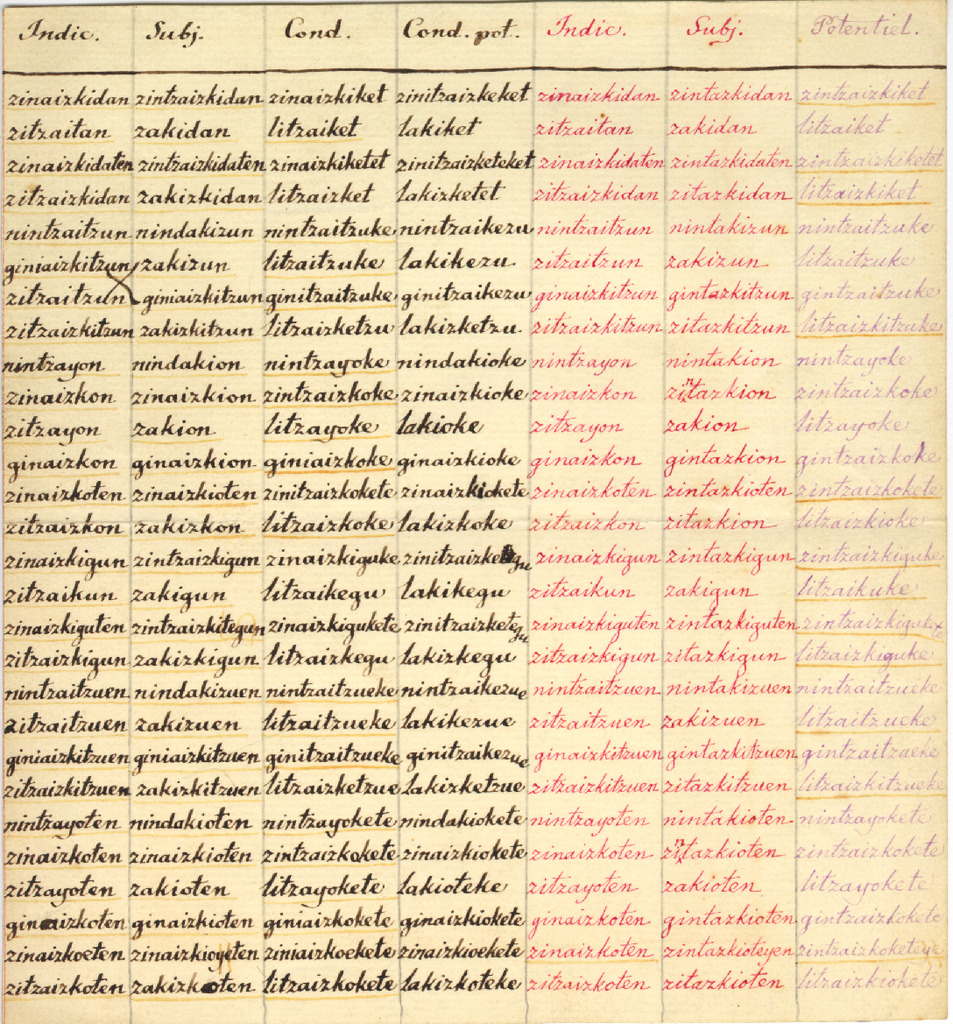 Indic. Subj. Cond. Cond. pot. Indic. Subj. Potentiel.
zinaizkidan zintzaizkidan zinaizkiket zinitzaizkeket zinaizkidan zintazkidan zintzaizkiket
zitzaitan zakidan litzaiket lakiket zitzaitan zakidan litzaiket
zinaizkidaten zintzaizkidaten zinaizkiketet zinitzaizketeket zinaizkidaten zintazkidaten zintzaizkiketet
zitzaizkidan zakizkidan litzaizket lakizketet zitzaizkidan zitazkidan litzaizkiket
nintzaitzun nindakizun nintzaitzuke nintzaikezu nintzaitzun nintakizun nintzaitzuke
giniaizkitzun zakizun litzaitzuke lakikezu zitzaitzun zakizun litzaitzuke
zitzaitzun giniaizkitzun ginitzaitzuke ginitzaikezu ginaizkitzun gintazkitzun gintzaitzuke
zitzaizkitzun zakizkitzun litzaizketzu lakizketzu zitzaizkitzun zitazkitzun litzaizkitzuke
nintzayon nindakion nintzayoke nindakioke nintzayon nintakion nintzayoke
zinaizkon zinaizkion zintzaizkoke zinaizkioke zinaizkon zintazkion zintzaizkoke
zitzayon zakion litzayoke lakioke zitzayon zakion litzayoke
ginaizkon ginaizkion giniaizkoke ginaizkioke ginaizkon gintazkion gintzaizkoke
zinaizkoten zinaizkioten zinitzaizkokete zinaizkiokete zinaizkoten zintazkioten zintzaizkokete
zitzaizkon zakizkon litzaizkoke lakizkoke zitzaizkon zitazkion litzaizkioke
zinaizkigun zintzaizkigun zinaizkiguke zinitzaizkegu zinaizkigun zintazkigun zintzaizkiguke
zitzaikun zakigun litzaikegu lakikegu zitzaikun zakigun litzaikuke
zinaizkiguten zintzaizkitegun zinaizkigukete zinitzaizketegu zinaizkiguten zintazkiguten
zitzaizkigun zakizkigun litzaizkegu lakizkegu zitzaizkigun zitazkigun litzaizkiguke
nintzaitzuen nindakizuen nintzaitzueke nintzaikezue nintzaitzuen nintakizuen nintzaitzueke
zitzaitzuen zakizuen litzaitzueke lakikezue zitzaitzuen zakizuen litzaitzueke
giniaizkitzuen giniaizkitzuen ginitzaitzueke ginitzaikezue ginaizkitzuen gintazkitzuen gintzaitzueke
zitzaizkitzuen zakizkitzuen litzaizketzue lakizketzue zitzaizkitzuen zitazkitzuen litzaizkitzueke
nintzayoten nindakioten nintzayokete nindakiokete nintzayoten nintakioten nintzayokete
zinaizkoten zinaizkioten zintzaizkokete zinaizkiokete zinaizkoten zintazkioten zintzaizkokete
zitzayoten zakioten litzayokete lakioteke zitzayoten zakioten litzayokete
ginaizkoten ginaizkioten giniaizkokete ginaizkiokete ginaizkoten gintazkioten gintzaizkokete
zinaizkoeten zinaizkioyeten ziniaizkoekete zinaizkioekete zinaizkoten zintazkioteyen zintzaizkoketeye
zitzaizkoten zakizkoten litzaizkokete lakizkoteke zitzaizkoten zitazkioten litzaizkiokete